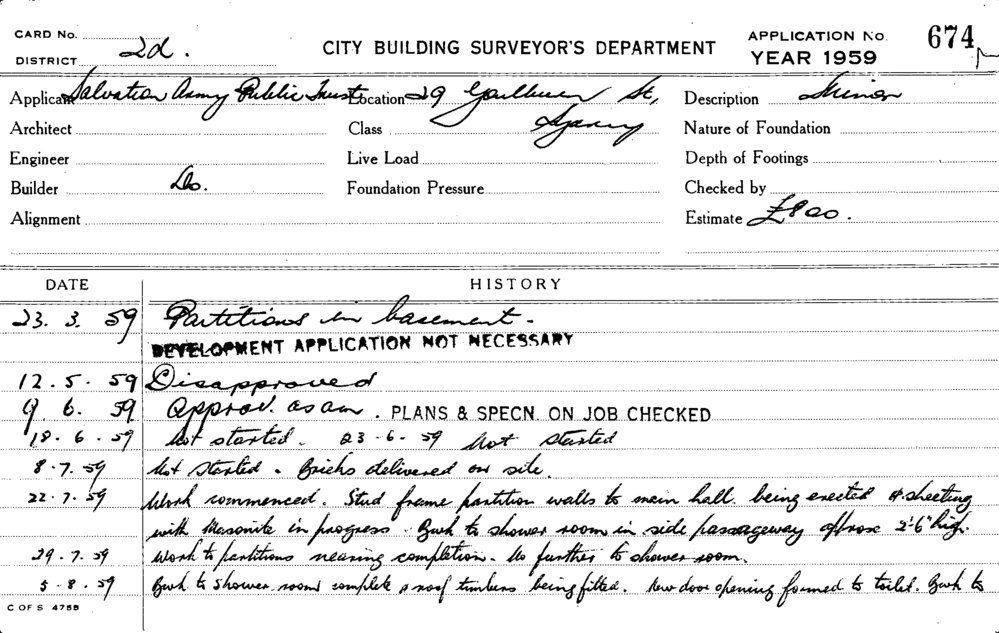 CARD No.
DISTRICT 2d.
CITY BUILDING SURVEYOR'S DEPARTMENT
APPLICATION No. 674
YEAR 1959
Applicant Salvation Army Public Trust Location 29 St,
Description Minor
Architect
Class Sydney
Nature of Foundation
Engineer
Live Load
Depth of Footings
Builder Do.
Foundation Pressure
Checked by
Alignment
Estimate £800.
DATE HISTORY
23. 3. 59 Partitions in basement.
DEVELOPMENT APPLICATION NOT NECESSARY
12. 5. 59 Disapproved
9. 6. 59 Approv. as am. PLANS & SPECN. ON JOB CHECKED
18. 6. 59 Not started. 23-6-59 Not started
8. 7. 59 Not started. Bricks delivered on site.
22. 7. 59 Work commenced. Stud frame partition walls to main hall being erected & sheeting
with Masonite in progress. Bwk to shower room in side passageway approx 2'6" high.
29. 7. 59 Work to partitions nearing completion. No further to shower room.
5. 8. 59 Bwk to shower room complete & roof timbers being fitted. New door opening formed to toilet. Bwk to
C OF S 475B